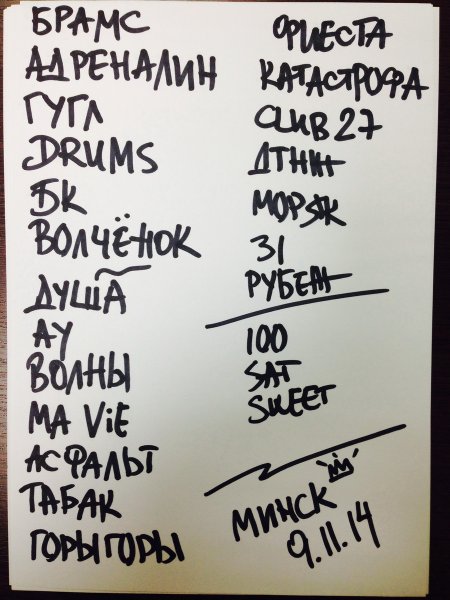 БРАМС
АДРЕНАЛИН
ГУГЛ
DRUMS
БК
ВОЛЧЁНОК
ДУША
АУ
ВОЛНЫ
MA ViE
АСФАЛЬТ
ТАБАК
ГОРЫГОРЫ
ФИЕСТА
КАТАСТРОФА
CLUB 27
ДТНЖ
МОРЯК
31
РУБЕЖ
100
SAT
SWEET
МИНСК
9.11.14